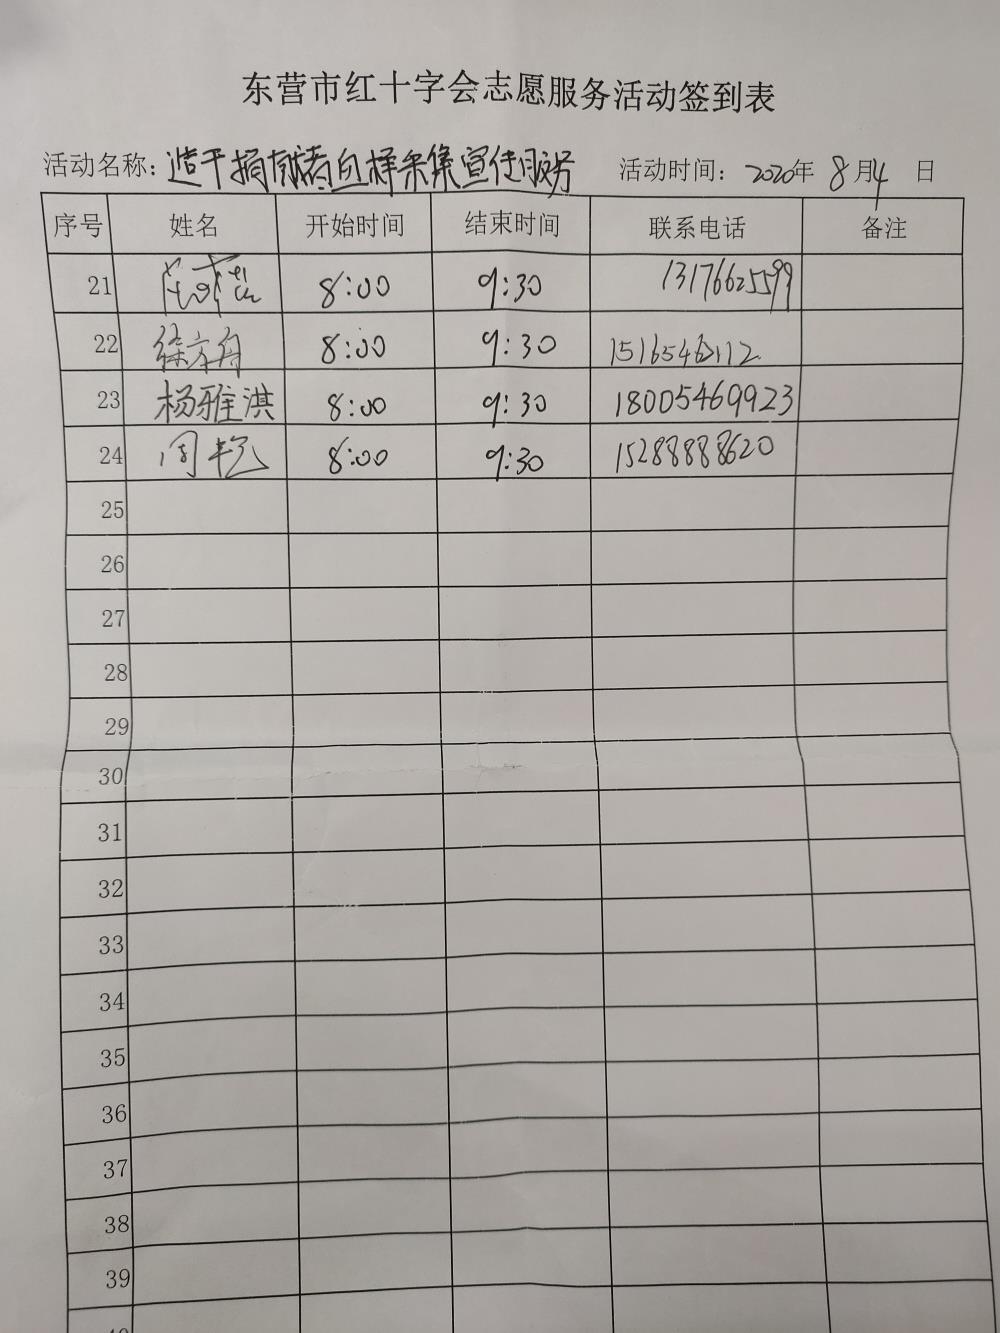 东营市红十字会志愿服务活动签到表
活动名称：造干捐献者血样采集宣传服务 活动时间：2020年 8月4 日
序号 姓名 开始时间 结束时间 联系电话 备注
21 8:00 9:30 13176625599
22 徐方舟 8:00 9:30
23 杨雅洪 8:00 9:30 18005469923
24 周艳 8:00 9:30 15288888620
25
26
27
28
29
30
31
32
33
34
35
36
37
38
39
40